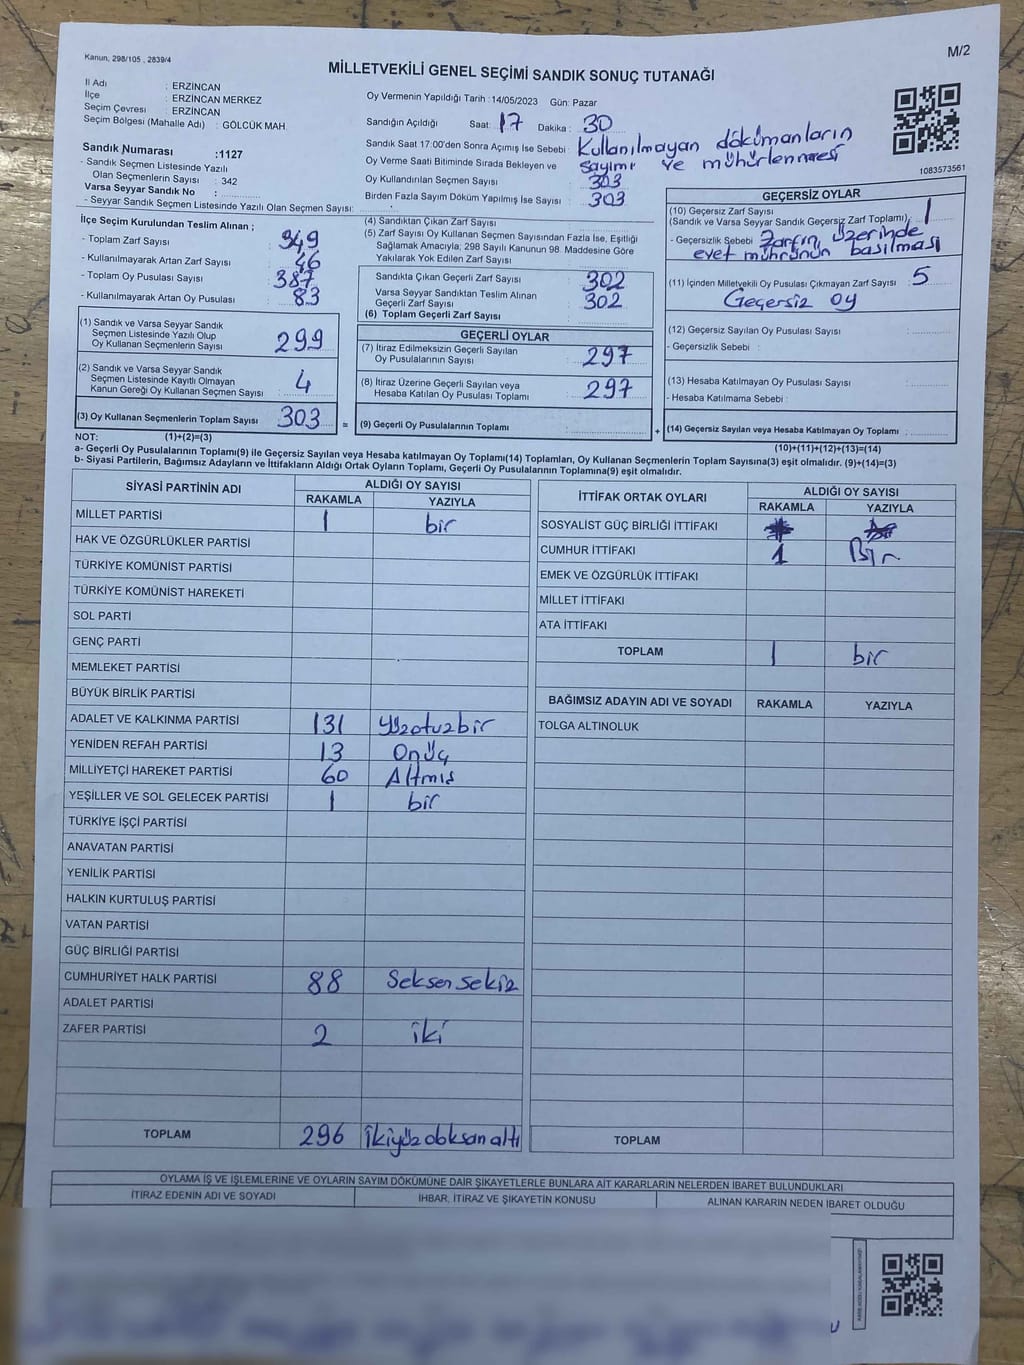 Kanun, 298/105 , 2839/4
M/2
MİLLETVEKİLİ GENEL SEÇİMİ SANDIK SONUÇ TUTANAĞI
İl Adı : ERZİNCAN
İlçe : ERZİNCAN MERKEZ
Seçim Çevresi : ERZİNCAN
Seçim Bölgesi (Mahalle Adı) : GÖLCÜK MAH.
Sandık Numarası :1127
- Sandık Seçmen Listesinde Yazılı
Olan Seçmenlerin Sayısı : 342
Varsa Seyyar Sandık No :
- Seyyar Sandık Seçmen Listesinde Yazılı Olan Seçmen Sayısı:
Oy Vermenin Yapıldığı Tarih :14/05/2023 Gün: Pazar
Sandığın Açıldığı Saat: 17 Dakika : 30
Sandık Saat 17:00'den Sonra Açımış İse Sebebi : Kullanılmayan dökümanların
sayımı ve mühürlenmesi
Oy Verme Saati Bitiminde Sırada Bekleyen ve
Oy Kullandırılan Seçmen Sayısı 303
Birden Fazla Sayım Döküm Yapılmış İse Sayısı : 303
1083573561
İlçe Seçim Kurulundan Teslim Alınan ;
- Toplam Zarf Sayısı : 349
- Kullanılmayarak Artan Zarf Sayısı : 46
- Toplam Oy Pusulası Sayısı : 387
- Kullanılmayarak Artan Oy Pusulası : 83
(1) Sandık ve Varsa Seyyar Sandık
Seçmen Listesinde Yazılı Olup
Oy Kullanan Seçmenlerin Sayısı : 299
(2) Sandık ve Varsa Seyyar Sandık
Seçmen Listesinde Kayıtlı Olmayan
Kanun Gereği Oy Kullanan Seçmen Sayısı : 4
(3) Oy Kullanan Seçmenlerin Toplam Sayısı : 303
=
(4) Sandıktan Çıkan Zarf Sayısı :
(5) Zarf Sayısı Oy Kullanan Seçmen Sayısından Fazla İse, Eşitliği
Sağlamak Amacıyla; 298 Sayılı Kanunun 98. Maddesine Göre
Yakılarak Yok Edilen Zarf Sayısı :
Sandıkta Çıkan Geçerli Zarf Sayısı : 302
Varsa Seyyar Sandıktan Teslim Alınan
Geçerli Zarf Sayısı : 302
(6) Toplam Geçerli Zarf Sayısı :
GEÇERLİ OYLAR
(7) İtiraz Edilmeksizin Geçerli Sayılan
Oy Pusulalarının Sayısı : 297
(8) İtiraz Üzerine Geçerli Sayılan veya
Hesaba Katılan Oy Pusulası Toplamı : 297
(9) Geçerli Oy Pusulalarının Toplamı :
+
GEÇERSİZ OYLAR
(10) Geçersiz Zarf Sayısı
(Sandık ve Varsa Seyyar Sandık Geçersiz Zarf Toplamı) : 1
- Geçersizlik Sebebi : Zarfın üzerinde
evet mührünün basılması
(11) İçinden Milletvekili Oy Pusulası Çıkmayan Zarf Sayısı : 5
Geçersiz oy
(12) Geçersiz Sayılan Oy Pusulası Sayısı :
- Geçersizlik Sebebi :
(13) Hesaba Katılmayan Oy Pusulası Sayısı :
- Hesaba Katılmama Sebebi :
(14) Geçersiz Sayılan veya Hesaba Katılmayan Oy Toplamı :
NOT: (1)+(2)=(3) (10)+(11)+(12)+(13)=(14)
a- Geçerli Oy Pusulasının Toplamı(9) ile Geçersiz Sayılan veya Hesaba katılmayan Oy Toplamı(14) Toplamları, Oy Kullanan Seçmenlerin Toplam Sayısına(3) eşit olmalıdır. (9)+(14)=(3)
b- Siyasi Partilerin, Bağımsız Adayların ve İttifakların Aldığı Ortak Oyların Toplamı, Geçerli Oy Pusulalarının Toplamına(9) eşit olmalıdır.
SİYASİ PARTİNİN ADI ALDIĞI OY SAYISI
RAKAMLA YAZIYLA
MİLLET PARTİSİ 1 bir
HAK VE ÖZGÜRLÜKLER PARTİSİ
TÜRKİYE KOMÜNİST PARTİSİ
TÜRKİYE KOMÜNİST HAREKETİ
SOL PARTİ
GENÇ PARTİ
MEMLEKET PARTİSİ
BÜYÜK BİRLİK PARTİSİ
ADALET VE KALKINMA PARTİSİ 131 Yüzotuzbir
YENİDEN REFAH PARTİSİ 13 Onüç
MİLLİYETÇİ HAREKET PARTİSİ 60 Altmış
YEŞİLLER VE SOL GELECEK PARTİSİ 1 bir
TÜRKİYE İŞÇİ PARTİSİ
ANAVATAN PARTİSİ
YENİLİK PARTİSİ
HALKIN KURTULUŞ PARTİSİ
VATAN PARTİSİ
GÜÇ BİRLİĞİ PARTİSİ
CUMHURİYET HALK PARTİSİ 88 Seksen sekiz
ADALET PARTİSİ
ZAFER PARTİSİ 2 iki
TOPLAM 296 ikiyüzdoksanaltı
İTTİFAK ORTAK OYLARI ALDIĞI OY SAYISI
RAKAMLA YAZIYLA
SOSYALİST GÜÇ BİRLİĞİ İTTİFAKI
CUMHUR İTTİFAKI 1 Bir
EMEK VE ÖZGÜRLÜK İTTİFAKI
MİLLET İTTİFAKI
ATA İTTİFAKI
TOPLAM 1 bir
BAĞIMSIZ ADAYIN ADI VE SOYADI RAKAMLA YAZIYLA
TOLGA ALTINOLUK
TOPLAM
OYLAMA İŞ VE İŞLEMLERİNE VE OYLARIN SAYIM DÖKÜMÜNE DAİR ŞİKAYETLERLE BUNLARA AİT KARARLARIN NELERDEN İBARET BULUNDUKLARI
İTİRAZ EDENİN ADI VE SOYADI İHBAR, İTİRAZ VE ŞİKAYETİN KONUSU ALINAN KARARIN NEDEN İBARET OLDUĞU